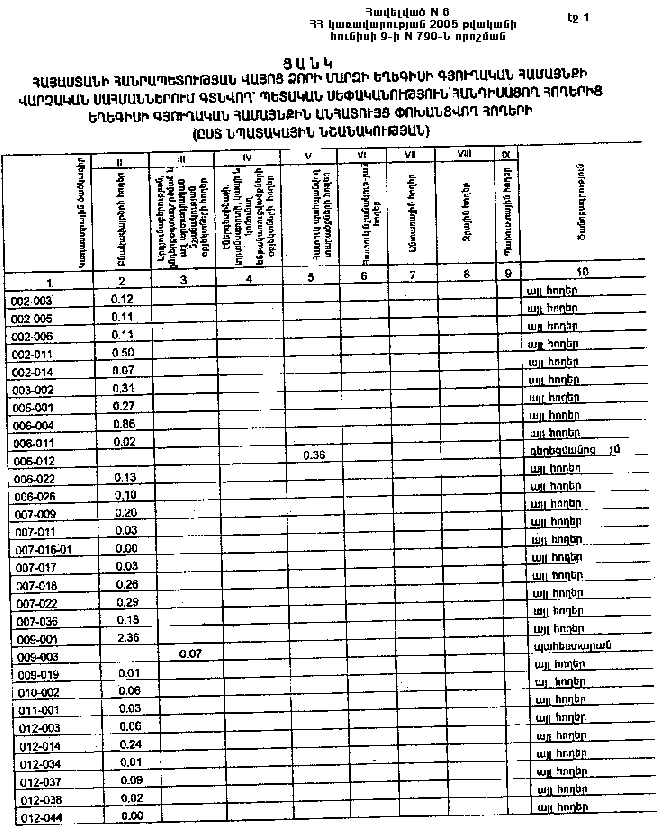 Հավելված N 6
ՀՀ կառավարության 2005 թվականի
հունիսի 9-ի N 790-Ն որոշման
էջ 1
ՑԱՆԿ
ՀԱՅԱՍՏԱՆԻ ՀԱՆՐԱՊԵՏՈՒԹՅԱՆ ՎԱՅՈՑ ՁՈՐԻ ՄԱՐԶԻ ԵՂԵԳԻՍԻ ԳՅՈՒՂԱԿԱՆ ՀԱՄԱՅՆՔԻ
ՎԱՐՉԱԿԱՆ ՍԱՀՄԱՆՆԵՐՈՒՄ ԳՏՆՎՈՂ ՊԵՏԱԿԱՆ ՍԵՓԱԿԱՆՈՒԹՅՈՒՆ ՀԱՆԴԻՍԱՑՈՂ ՀՈՂԵՐԻՑ
ԵՂԵԳԻՍԻ ԳՅՈՒՂԱԿԱՆ ՀԱՄԱՅՆՔԻՆ ԱՆՀԱՏՈՒՅՑ ՓՈԽԱՆՑՎՈՂ ՀՈՂԵՐԻ
(ԸՍՏ ՆՊԱՏԱԿԱՅԻՆ ՆՇԱՆԱԿՈՒԹՅԱՆ)
II III IV V VI VII VIII IX
Կադաստրային ծածկագիր
Բնակավայրերի հողեր
Հատուկ պահպանվող տարածքների հողեր
հողեր
Անտառային հողեր
Ջրային հողեր
Պահուստային հողեր
Ծանոթագրություն
1 2 3 4 5 6 7 8 9 10
002-003 0.12 այլ հողեր
002-005 0.11 այլ հողեր
002-006 0.11 այլ հողեր
002-011 0.50 այլ հողեր
002-014 0.07 այլ հողեր
003-002 0.31 այլ հողեր
005-001 0.27 այլ հողեր
006-004 0.86 այլ հողեր
006-011 0.02 այլ հողեր
006-012 0.36 գերեզմանոց
006-022 0.13 այլ հողեր
006-026 0.10 այլ հողեր
007-009 0.20 այլ հողեր
007-011 0.03 այլ հողեր
007-016-01 0.00 այլ հողեր
007-017 0.03 այլ հողեր
007-018 0.26 այլ հողեր
007-022 0.29 այլ հողեր
007-036 0.18 այլ հողեր
009-001 2.36 այլ հողեր
009-003 0.07 պահեստարան
009-019 0.01 այլ հողեր
010-002 0.06 այլ հողեր
011-001 0.03 այլ հողեր
012-003 0.06 այլ հողեր
012-014 0.24 այլ հողեր
012-034 0.01 այլ հողեր
012-037 0.09 այլ հողեր
012-038 0.02 այլ հողեր
012-044 0.00 այլ հողեր